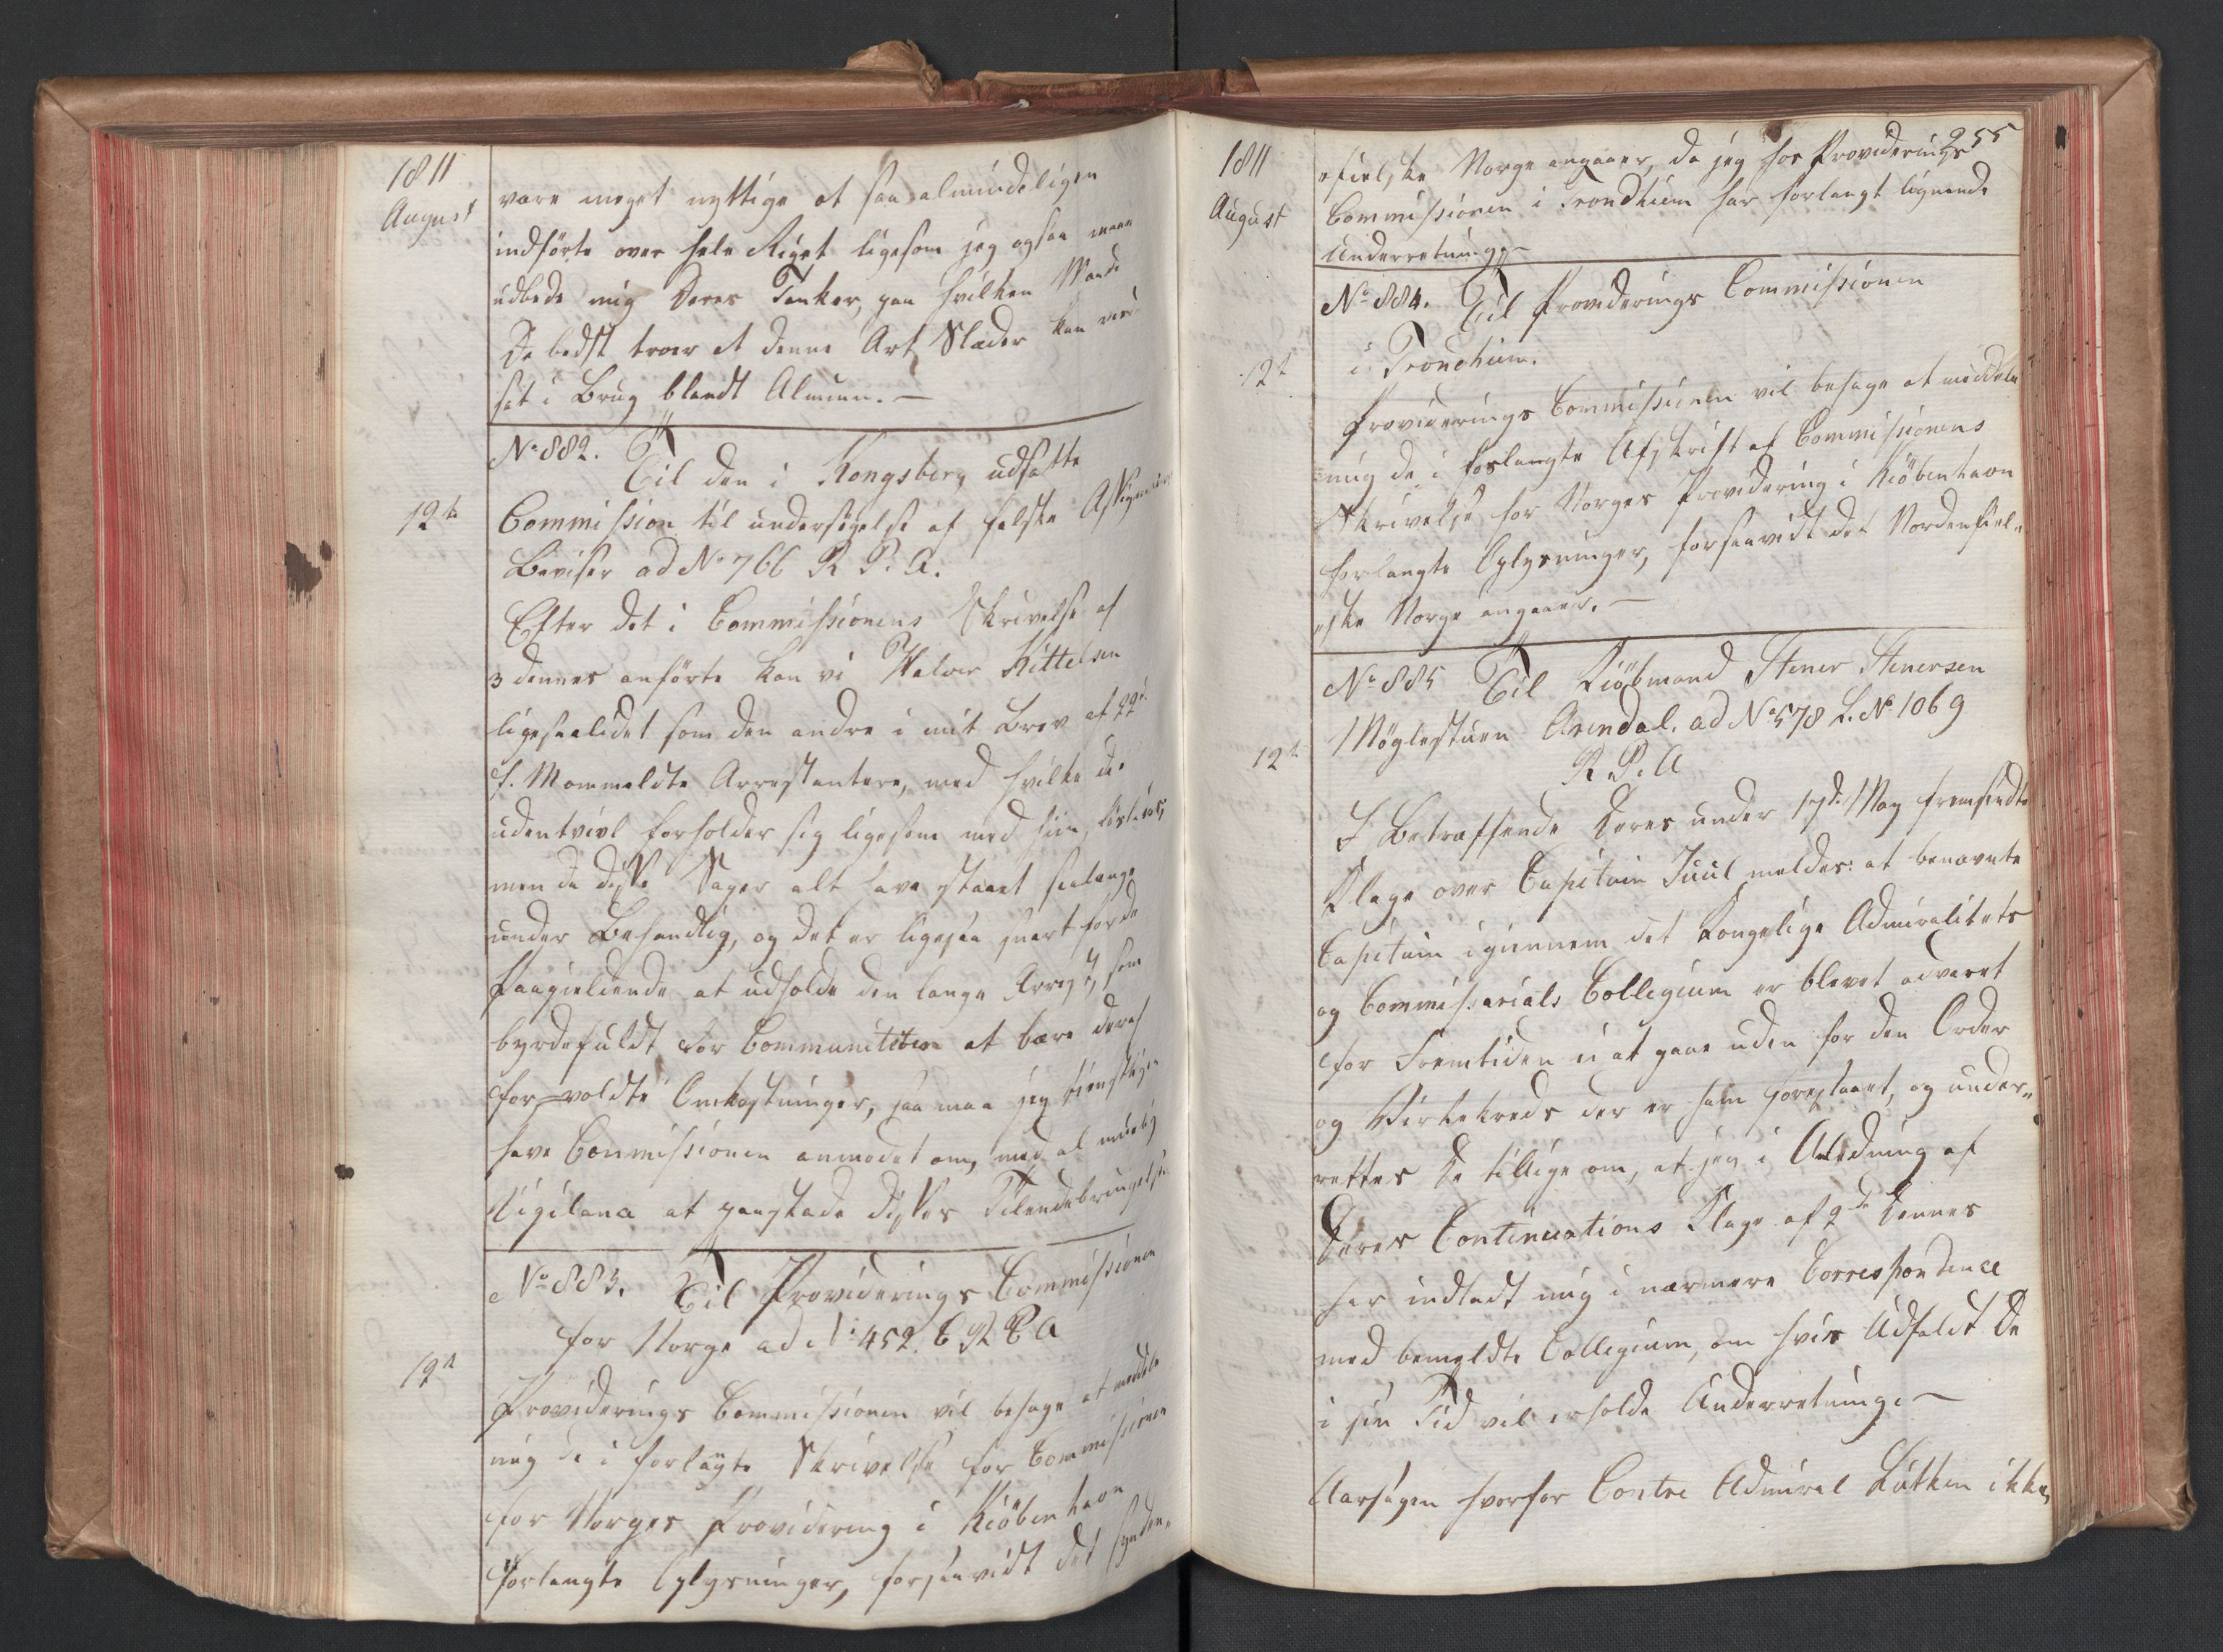 1811
August
være meget nyttige at faa almindeligen
indførte over hele Riget ligesom jeg ogsaa maae
udbede mig Deres Tanker, paa hvilken Maade
De bedst troer at denne Art Slæder kan
sat i Brug blandt Almuen. —
No 882. Til den i Kongsberg udsatte
12te
Commission til undersøgelse af falske Assignations
Beviser ad No 766 R. P. A.
Efter det i Commissionens Skrivelse af
3 dennes anførte kan vi Halvor Kittelsen
ligesaalidet som den andre i mit Brev af 22de
f. M ommeldte Arrestantere, med hvilke det
udentvivl forholder sig ligesom med ham, løslades,
men da disse Sager alt have staaet saalænge
under Behandlig, og det er ligesaa svært for de
Paagieldende at udholde den lange Arrest, som
byrdefuldt for Communiteten at bære deraf
for=voldte Omkostninger, saa maa jeg tienstligen
have Commissionen anmodet om, med al muelig
Vigilance at paaskynde disses Tilendebringelse
No 883. Til Providerings Commissionen
for Norge ad No 452. C R C A
12te
Providerings Commissionen vil behage at meddele
mig de i forlagte Skrivelse for Commissionen
for Norges Providering i Kiøbenhavn
forlangte Oplysninger, forsaavidt det synden„
1811
August
255
„fielske Norge angaaer, da jeg hos Providerings
Commissionen i Trondhiem har forlangt lignende
Underretning. —
No 884. Til Providerings Commissionen
i Trondhiem.
12te
Providerings Commissionen vil behage at meddele
mig de i forlangte Afskrift af Commissionens
Skrivelse for Norges Providering i Kiöbenhavn
forlangte Oplysninger, forsaavidt det Nordenfiel„
„ske Norge angaaer. —
No 885 Til Kiøbmand Stener Stenersen
12te
Møglestuen Arendal. ad No 578 L. No 1069
R. P. A
I Betræffende Deres under 17de May fremsendte
Klage over Capitain Juul meldes: at benævnte
Capitain igiennem det Kongelige Admiralitets
og Commissariats Collegium er blevet advaret
for Fremtiden ei at gaae uden for den Order
og Virkekreds der er ham foreskaaret, og under„
rettes De tillige om, at jeg i Anledning af
Deres Continuations Klage af 9de dennes
har indladt mig i nærmere Correspondence
med bemeldte Collegium, om hvis Udfald De
i sin Tid vil erholde Underretning. —
Aarsagen hvorfor Contre Admiral Lütken ikke